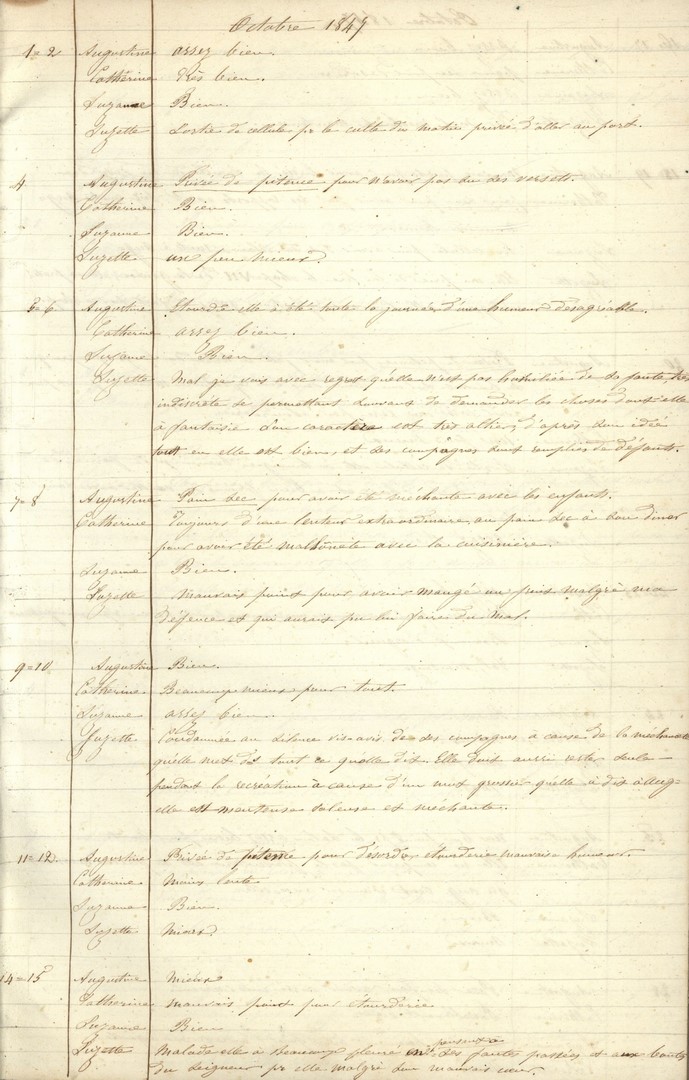 Octobre 1847
1=2 Augustine assez bien.
Cathérine Très bien.
Suzanne Bien.
Suzette Sortie de cellule pr le culte du matin privée d'aller au port.
4 Augustine Privée de pitence pour n'avoir pas su ses versets.
Catherine Bien.
Suzanne Bien.
Suzette un peu mieux.
5=6 Augustine Etourdie elle à été toute la journée d'une humeur désagréable.
Catherine assez bien.
Suzanne Bien.
Suzette Mal je vois avec regret qu'elle n'est pas humiliée de sa faute, très
indiscrète se permettant souvent de demander les choses dont elle
à fantaisie. Son caractère est très altier, d'après son idée
tout en elle est bien, et ses compagnes sont remplies de défauts.
7=8 Augustine Pain sec pour avoir été méchante avec les enfants.
Catherine Toujours d'une lenteur extraordinaire, au pain sec à son diner
pour avoir été malhonête avec la cuisinière.
Suzanne Bien.
Suzette Mauvais point pour avoir mangé un fruit malgré ma
défence et qui aurait pu lui faire du mal.
9=10 Augustine Bien.
Catherine Beaucoup mieux pour tout.
Suzanne assez bien.
Suzette Condannée au silence vis-avis de ses compagnes a cause de la méchanceté
qu'elle met dès tout ce qu'elle dit. Elle doit aussi rester seule
pendant la recréation à cause d'un mot grossier qu'elle à dit à Aug-
elle est menteuse voleuse et méchante.
11=12. Augustine Privée de pitence pour désordre étourderie mauvaise humeur.
Catherine moins lente
Suzanne Bien.
Suzette Mieux.
14=15 Augustine Mieux
Catherine mauvais point pour étourderie
Suzanne Bien
Suzette Malade elle à beaucoup pleuré pensant à ses fautes passées et aux bontés
du Seigneur pr elle malgré son mauvais cœur.